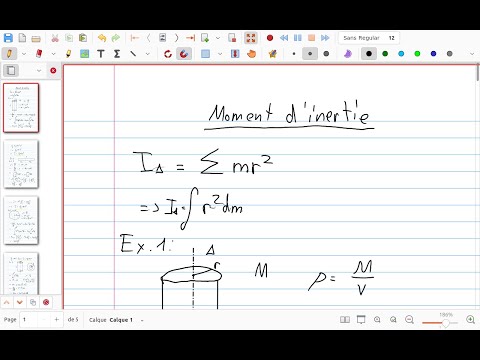 Sans Regular 12
Moment d'inertie
I_Δ = Σ mr²
=> I_Δ = ∫ r² dm
Ex. 1:
Δ
r
M
ρ = M/V
Page 1 de 5 Calque Calque 1
186%